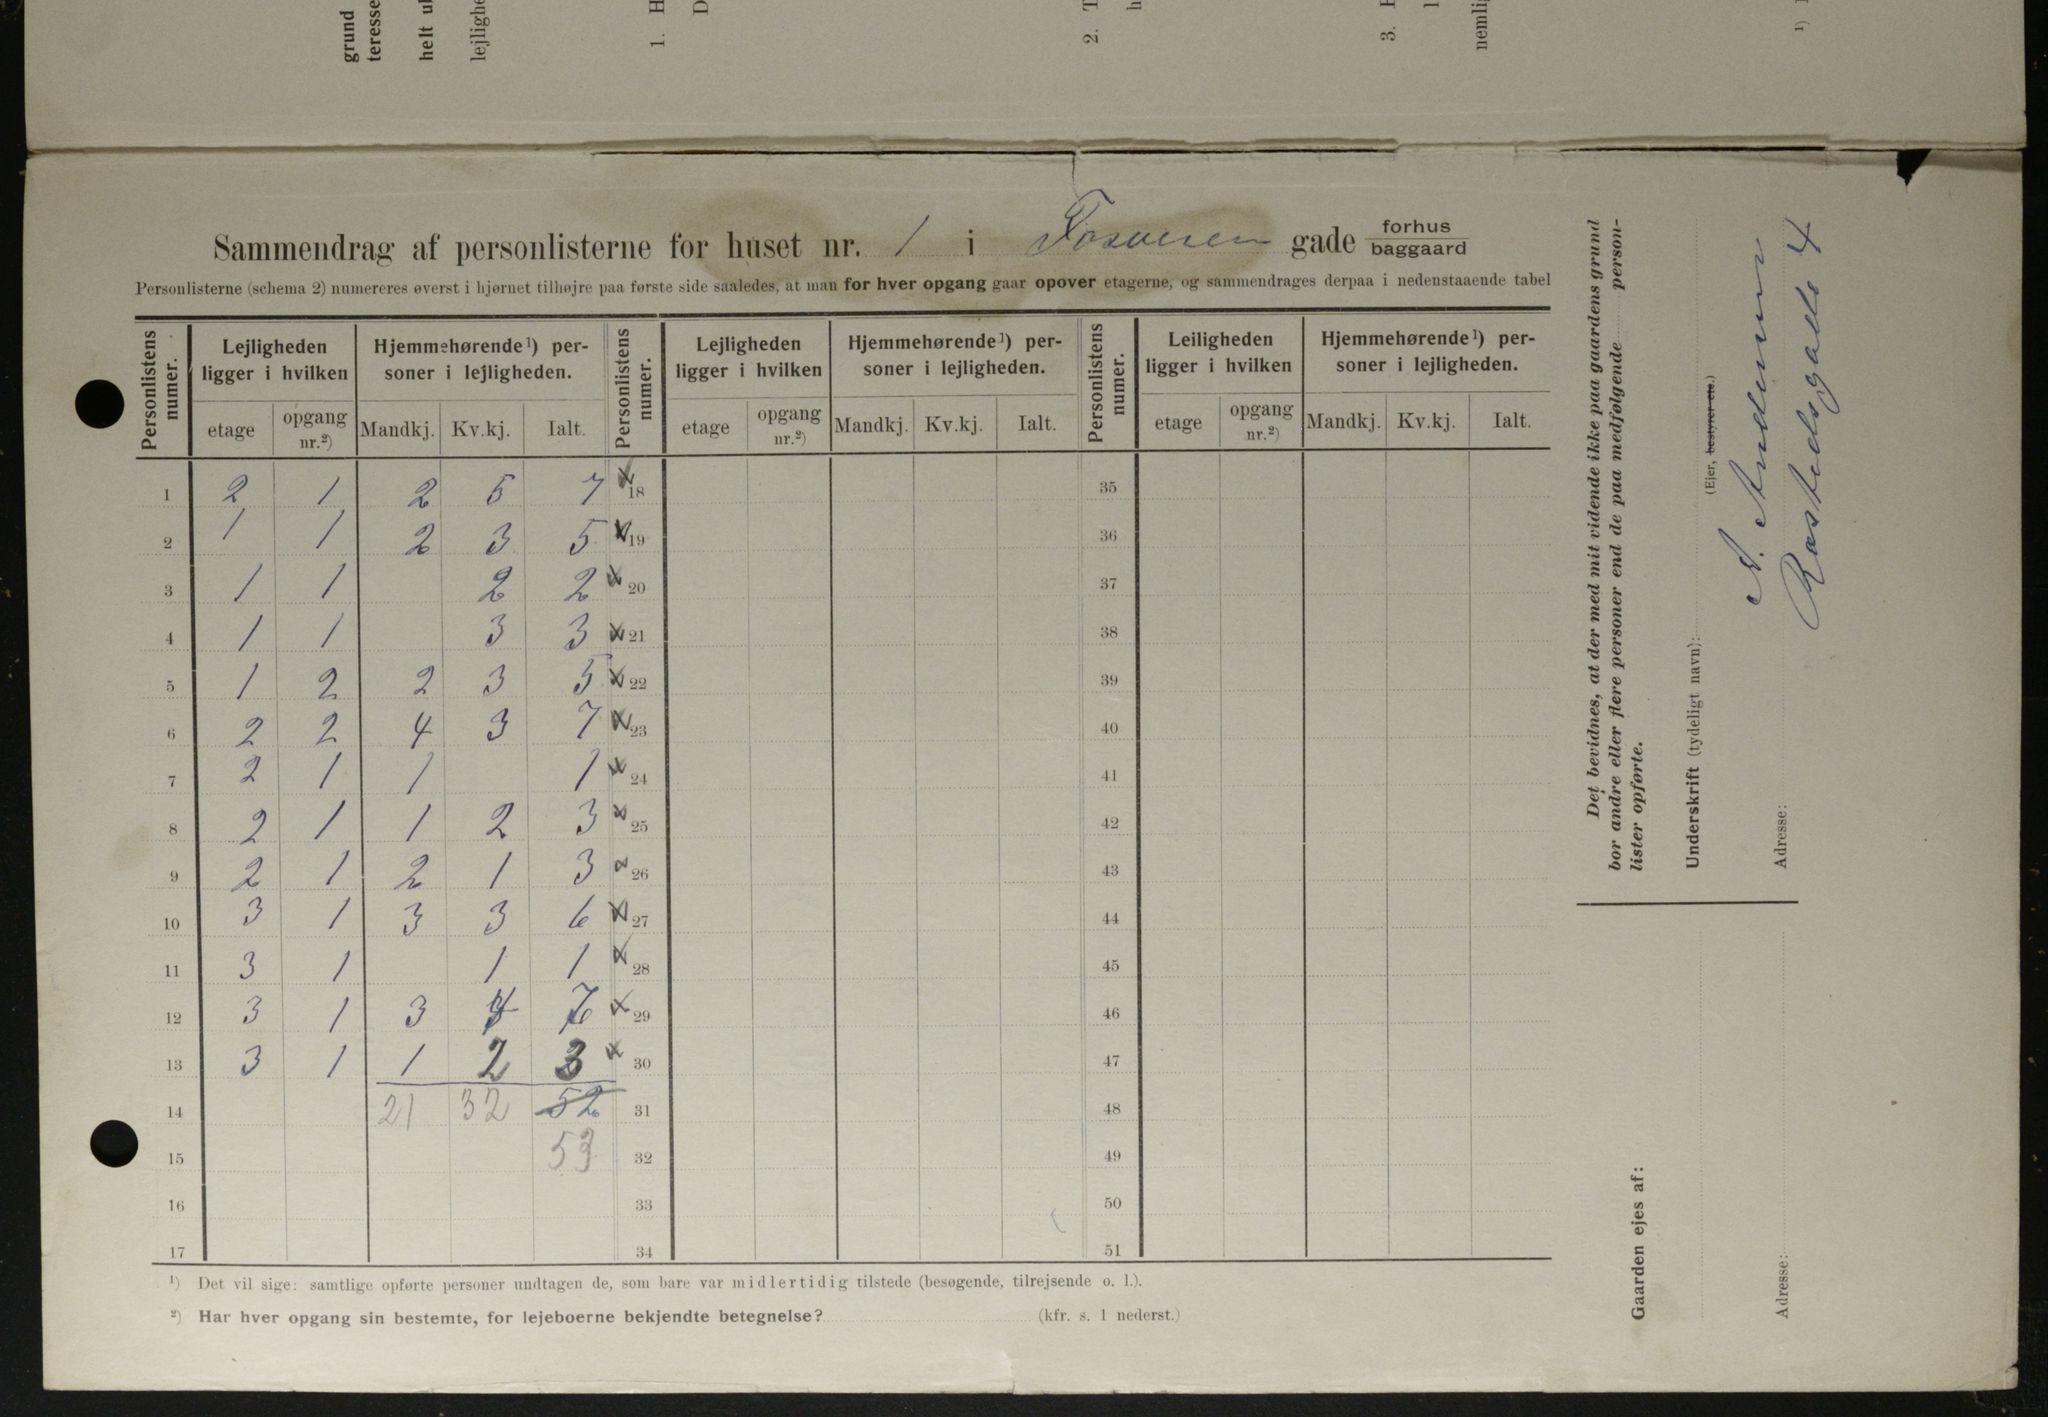 grund
teresse
helt ul
lejlighe
1. H
D
2. T
h
3. H
nemlig
¹)
Sammendrag af personlisterne for huset nr. 1 i Fosveien gade forhus baggaard
Personlisterne (schema 2) numereres øverst i hjørnet tilhøjre paa første side saaledes, at man for hver opgang gaar opover etagerne, og sammendrages derpaa i nedenstaaende tabel
Personlistens numer. Lejligheden ligger i hvilken Hjemmehørende¹) personer i lejligheden. Personlistens numer. Lejligheden ligger i hvilken Hjemmehørende¹) personer i lejligheden. Personlistens numer. Leiligheden ligger i hvilken Hjemmehørende¹) personer i lejligheden.
etage opgang nr.²) Mandkj. Kv.kj. Ialt. etage opgang nr.²) Mandkj. Kv.kj. Ialt. etage opgang nr.²) Mandkj. Kv.kj. Ialt.
1 2 1 2 5 7 x 18 35
2 1 1 2 3 5 x 19 36
3 1 1 2 2 x 20 37
4 1 1 3 3 x 21 38
5 1 2 2 3 5 x 22 39
6 2 2 4 3 7 x 23 40
7 2 1 1 1 x 24 41
8 2 1 1 2 3 x 25 42
9 2 1 2 1 3 x 26 43
10 3 1 3 3 6 x 27 44
11 3 1 1 1 x 28 45
12 3 1 3 4 7 x 29 46
13 3 1 1 2 3 x 30 47
14 21 32 52 31 48
15 53 32 49
16 33 50
17 34 51
¹) Det vil sige: samtlige opførte personer undtagen de, som bare var midlertidig tilstede (besøgende, tilrejsende o. l.).
²) Har hver opgang sin bestemte, for lejeboerne bekjendte betegnelse? (kfr. s. 1 nederst.)
Det bevidnes, at der med mit vidende ikke paa gaardens grund
bor andre eller flere personer end de paa medfølgende person-
lister opførte.
Underskrift (tydeligt navn): A. Andersen
(Ejer, bestyrer etc.)
Adresse: Rostedsgade 4
Gaarden ejes af:
Adresse: